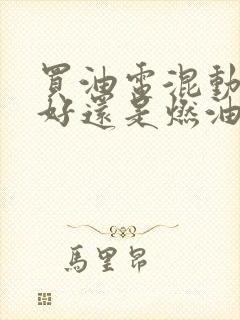 買油電混動
好還是燃油
馬里昂